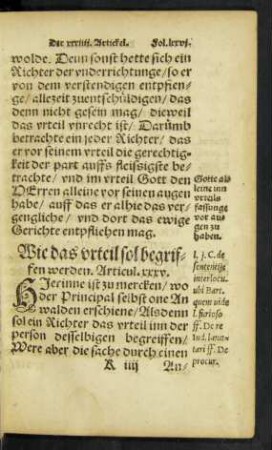 Der xxxiiii. Artickel. Fol. lxxvj.
wolde. Denn sonst hette sich ein
Richter der vnderrichtunge/ so er
von dem verstendigen entpfien-
ge/ allezeit zuentschüldigen/ das
denn nicht gesein mag/ dieweil
das vrteil vnrecht ist/ Darümb
betrachte ein jeder Richter/ das
er vor seinem vrteil die gerechtig-
keit der part auffs fleissigste be-
trachte/ vnd im vrteil Gott den
HErren alleine vor seinen augen
habe/ auff das er alhie das ver-
gengliche/ vnd dort das ewige
Gerichte entpfliehen mag.
Gotte al-
leine inn
vrteils
fassunge
vor au-
gen zu
haben.
Wie das vrteil sol begrif-
fen werden. Articul. xxxv.
HIerinne ist zu mercken/ wo
der Principal selbst one An
walden erschiene/ Alsdenn
sol ein Richter das vrteil inn der
person desselbigen begreiffen/
Were aber die sache durch einen
K iiij An/
l. j. C. de
sententijs
interlocu.
ubi Bart.
quem uide
l. furioso
ff. De re
iud.
ff. De
procur.